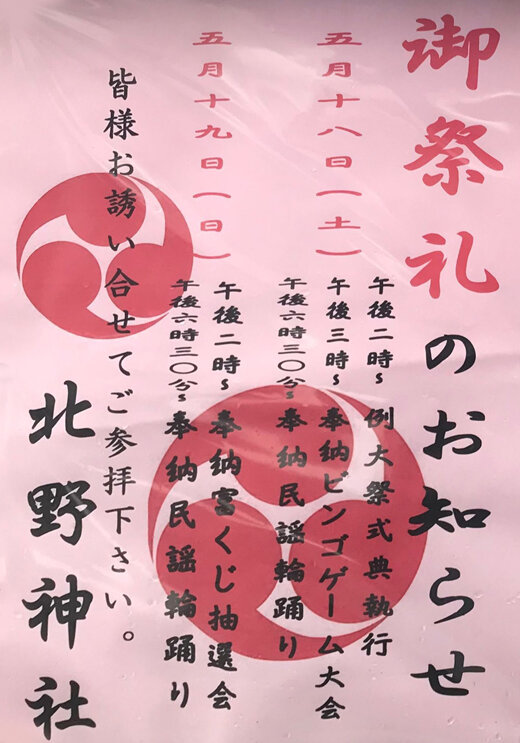 御祭礼のお知らせ
五月十八日(土)
午後二時~例大祭式典執行
午後三時~奉納ビンゴゲーム大会
午後六時三〇分~奉納民謡輪踊り
五月十九日(日)
午後二時~奉納富くじ抽選会
午後六時三〇分~奉納民謡輪踊り
皆様お誘い合せてご参拝下さい。
北野神社